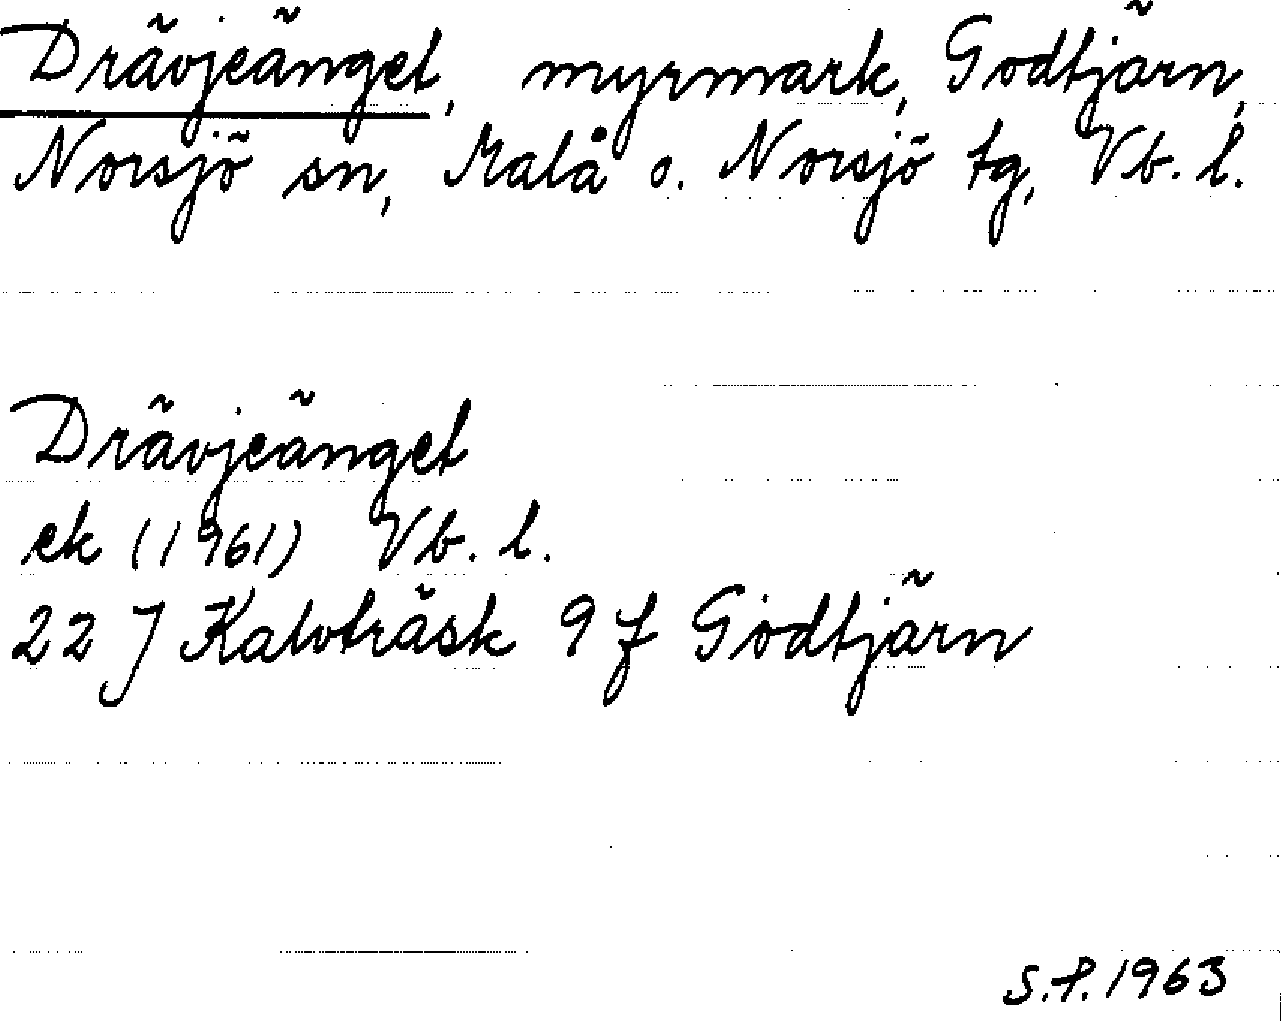 Drävjeänget, myrmark, Godtjärn,
Norsjö sn, Malå o. Norsjö tg, Vb. l.
Drävjeänget
ek (1961) Vb. l.
22 J Kalvträsk 9 f Godtjärn
S.P. 1963